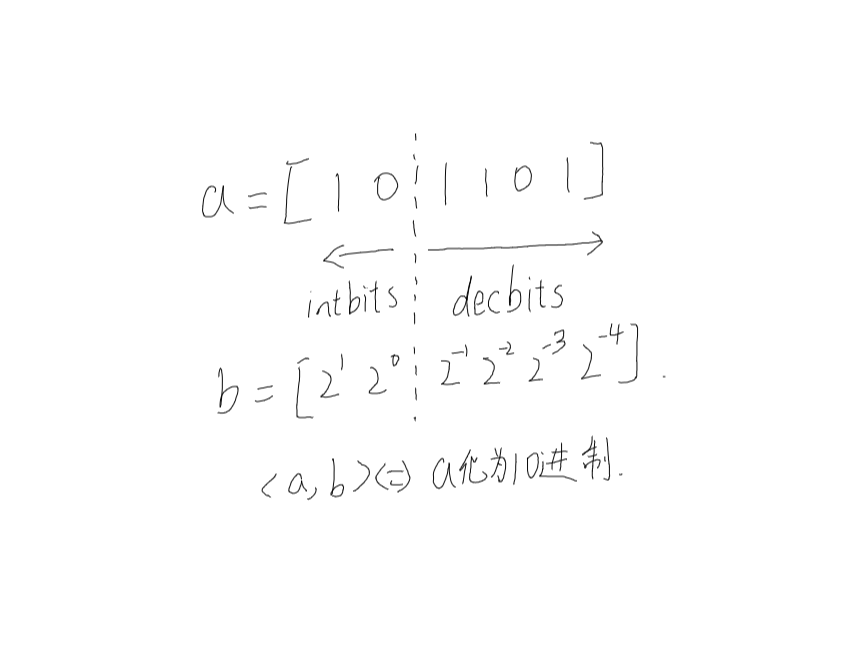 a = [ 1 0 ¦ 1 1 0 1 ]
intbits ¦ decbits
b = [ 2¹ 2⁰ ¦ 2⁻¹ 2⁻² 2⁻³ 2⁻⁴ ] .
<a, b> <=> a化为10进制.